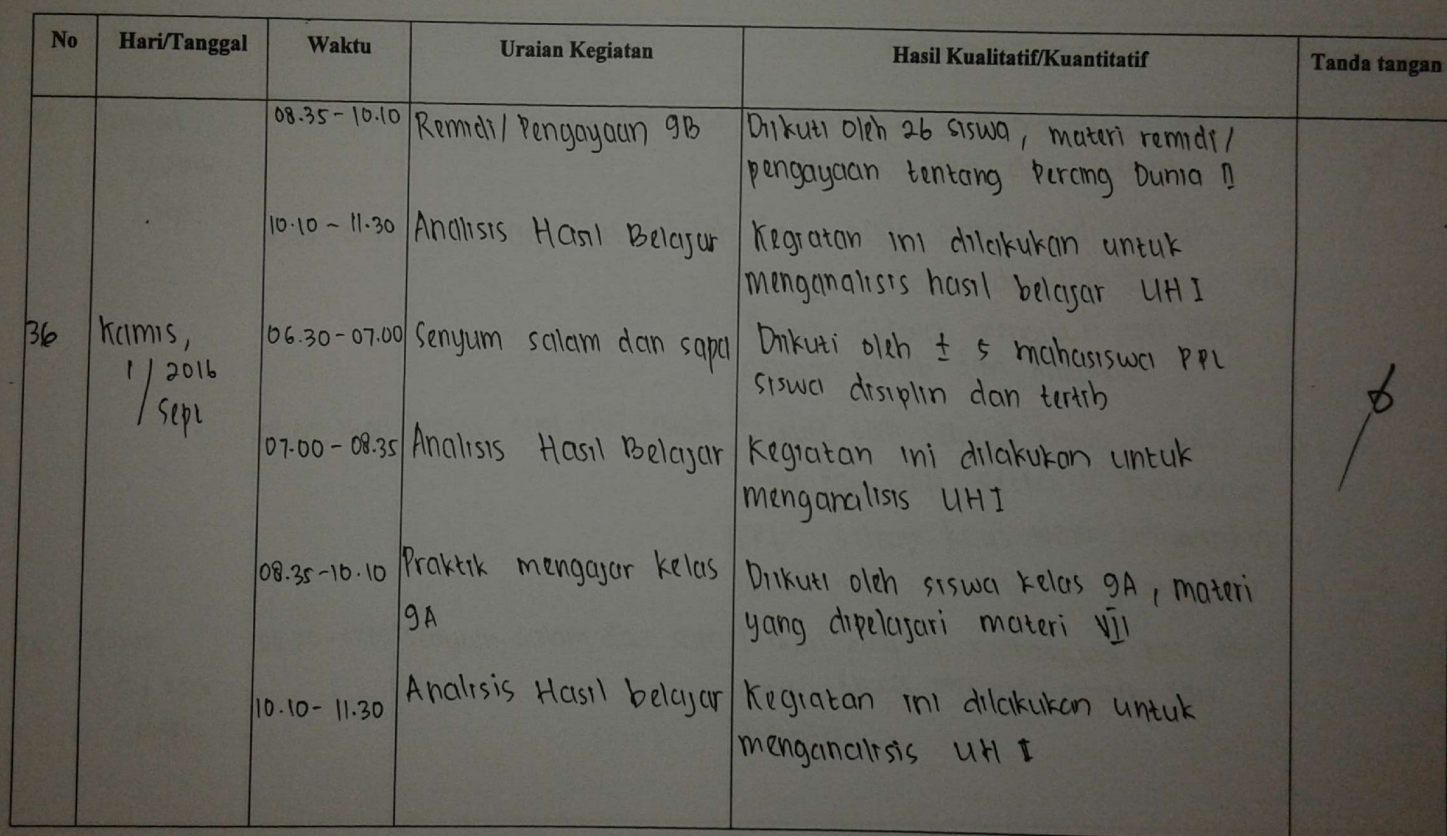 No Hari/Tanggal Waktu Uraian Kegiatan Hasil Kualitatif/Kuantitatif Tanda tangan
08.35 - 10.10 Remidi/ Pengayaan 9B Diikuti oleh 26 siswa, materi remidi/
pengayaan tentang Perang Dunia II
10.10 - 11.30 Analisis Hasil Belajar Kegiatan ini dilakukan untuk
menganalisis hasil belajar UH I
36 Kamis, 06.30 - 07.00 Senyum salam dan sapa Diikuti oleh ± 5 mahasiswa PPL
1/ 2016 siswa disiplin dan tertib
Sept
07.00 - 08.35 Analisis Hasil Belajar Kegiatan ini dilakukan untuk
menganalisis UH I
08.35 - 10.10 Praktik mengajar kelas Diikuti oleh siswa kelas 9A, materi
9A yang dipelajari materi VII
10.10 - 11.30 Analisis Hasil belajar Kegiatan ini dilakukan untuk
menganalisis UH I